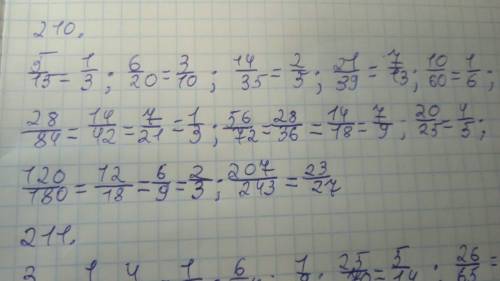 210.
5/15 = 1/3; 6/20 = 3/10; 14/35 = 2/5; 21/39 = 7/13; 10/60 = 1/6;
28/84 = 14/42 = 7/21 = 1/3; 56/72 = 28/36 = 14/18 = 7/9; 20/25 = 4/5;
120/180 = 12/18 = 6/9 = 2/3; 207/243 = 23/27
211.
3 1 4 1 6 1 25 = 5/14; 26/65 =